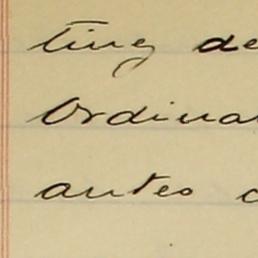 ting de
Ordinar
antes